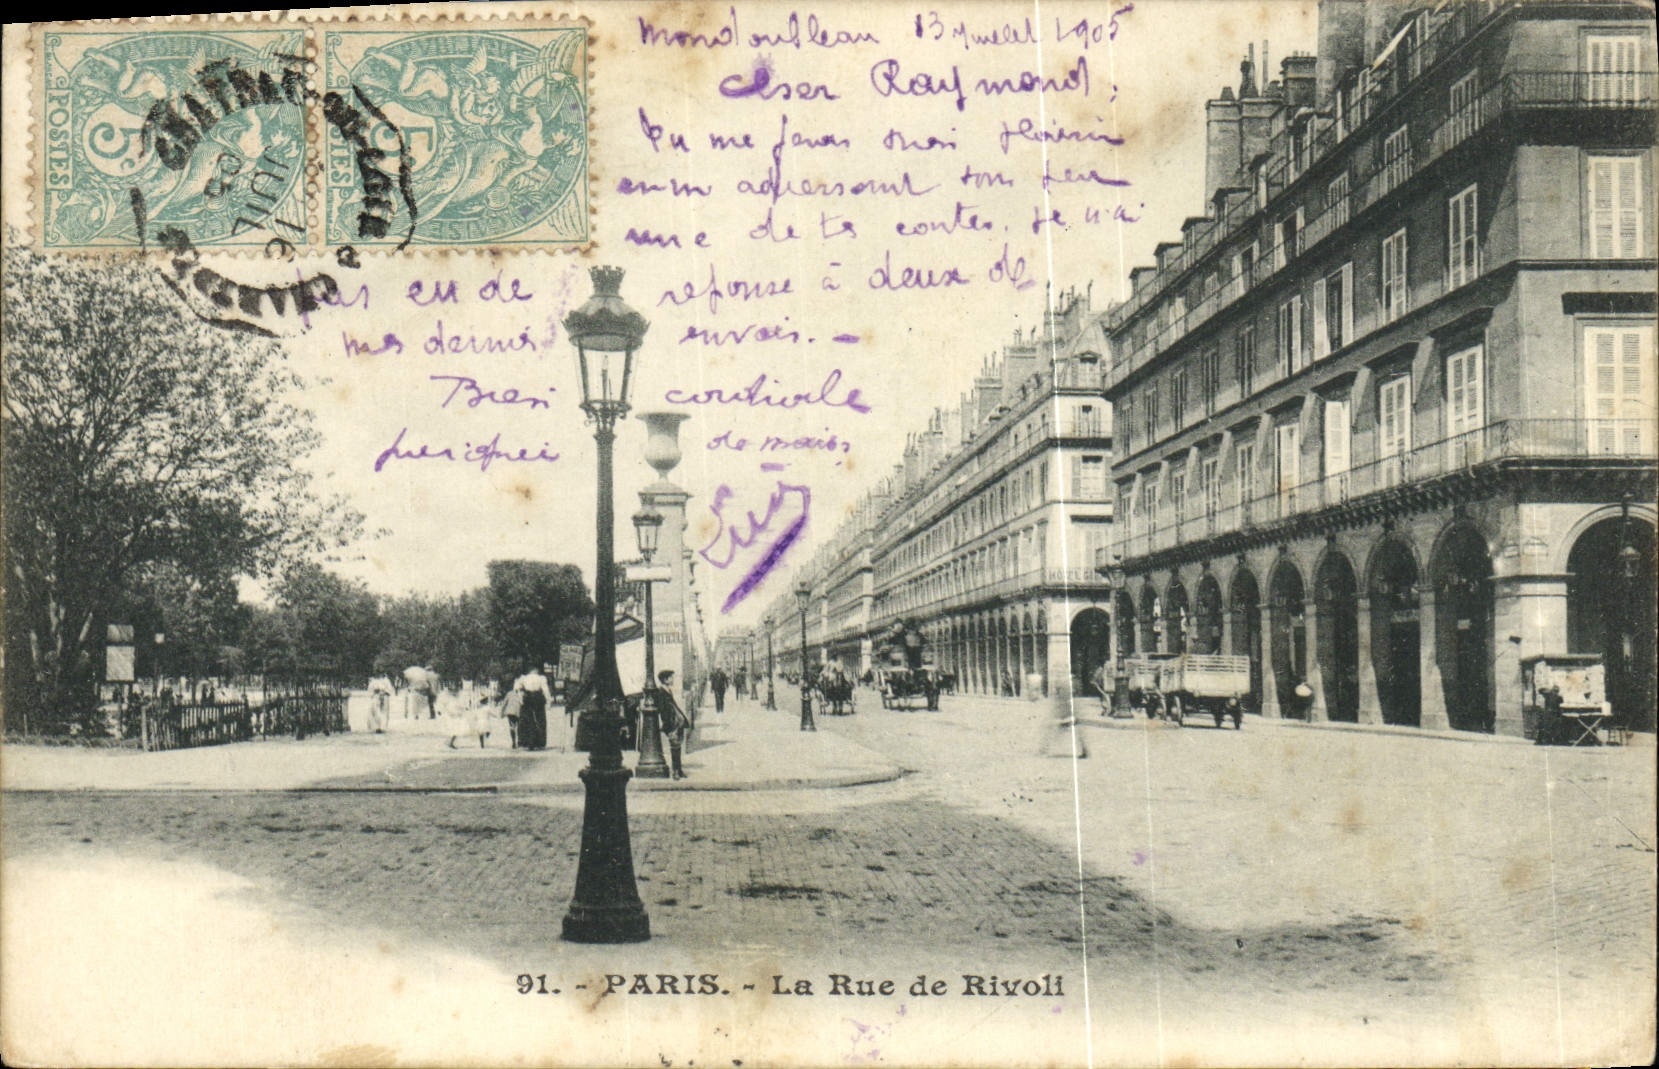 Mondoubleau 13 juillet 1905
Cher Raymond,
Tu me feras plaisir
en m'adressant
une de tes cartes. Je n'ai
pas eu de reponse à deux de
mes derniers envois. —
Bien cordiale
de mains
POSTES
5c
POSTES
5c
16
JUIL
05
HOTEL
91. - PARIS. - La Rue de Rivoli